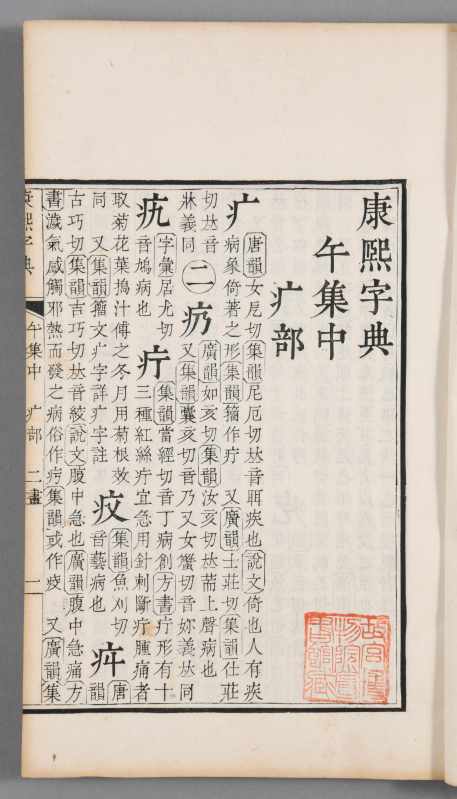 康熙字典
午集中
疒部
疒
唐韻女戹切集韻尼厄切𠀤音聑疾也說文倚也人有疾
病象倚著之形集韻籀作疔 又廣韻士莊切集韻仕莊
切𠀤音
牀義同
二
疓
廣韻如亥切集韻汝亥切𠀤䎠上聲病也
又集韻囊亥切音乃又女蟹切音妳義𠀤同
字彙居尤切
音鳩病也
疔
集韻當經切音丁病創方書疔形有十
三種紅絲疔宜急用針刺斷疔腫痛者
取菊花葉搗汁傅之冬月用菊根效
同 又集韻籀文疒字詳疒字註
集韻魚刈切
音藝病也
唐
韻
古巧切集韻吉巧切𠀤音絞說文腹中急也廣韻腹中急痛方
書濊氣感觸邪熱而發之病俗作集韻或作 又廣韻集
康熙字典 午集中 疒部 二畫 一
故宮博物院圖書館藏